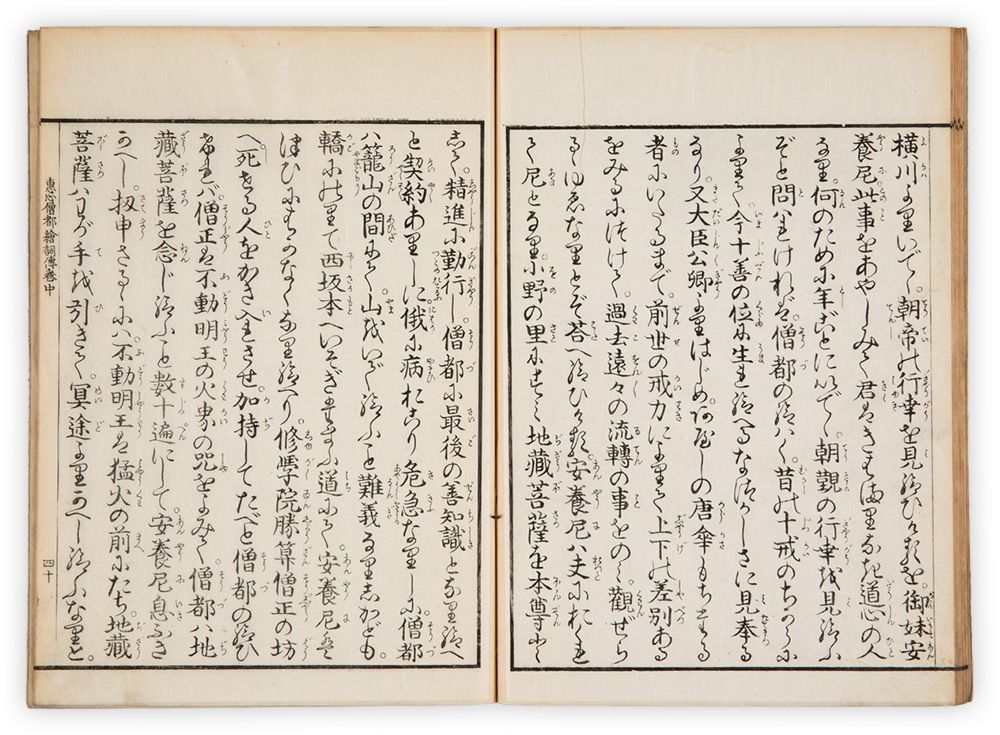 横川よりいでゝ朝帝の行幸を見給ひける。御妹安
養尼此事をあやしみて君はきはまりなき道心の人
なり。何のために年ごとにいでゝ朝覲の行幸を見給ふ
ぞと問はれければ僧都の給はく。昔の十戒のちからに
よりて今十善の位に生れ給へるなつかしさに見奉る
なり。又大臣公卿よりはじめ。あやしの唐傘もちまゐる
者にいたるまで。前世の戒力によりて上下の差別ある
をみるにつけて。過去遠々の流轉の事をのべて觀ぜら
るゝゆゑなりとぞ答へ給ひける。安養尼ハ夫におくれ
て尼となり。小野の里にすみて地藏菩薩を本尊として
精進に勤行し。僧都に最後の善知識となり給へ
と契約ありしに。俄に病おこり危急なりしに。僧都
ハ籠山の間にて。山をいで給ふこと難義なりしかども。
轎にのりて西坂本へいそぎたまふ道にて。安養尼は
つひにはかなくなり給へり。修學院勝算僧正の坊
へ死せる人をかき入させ。加持してたべと僧都の給ひ
ければ。僧正は不動明王の火界の咒をよみて。僧都ハ地
藏菩薩を念じ給ふこと數十遍にして。安養尼息ふき
かへし。扨申さるゝに。不動明王は猛火の前にたち。地藏
菩薩ハわが手を引きて。冥途よりかへし給ふなりと。
惠心僧都繪詞傳卷中
四十